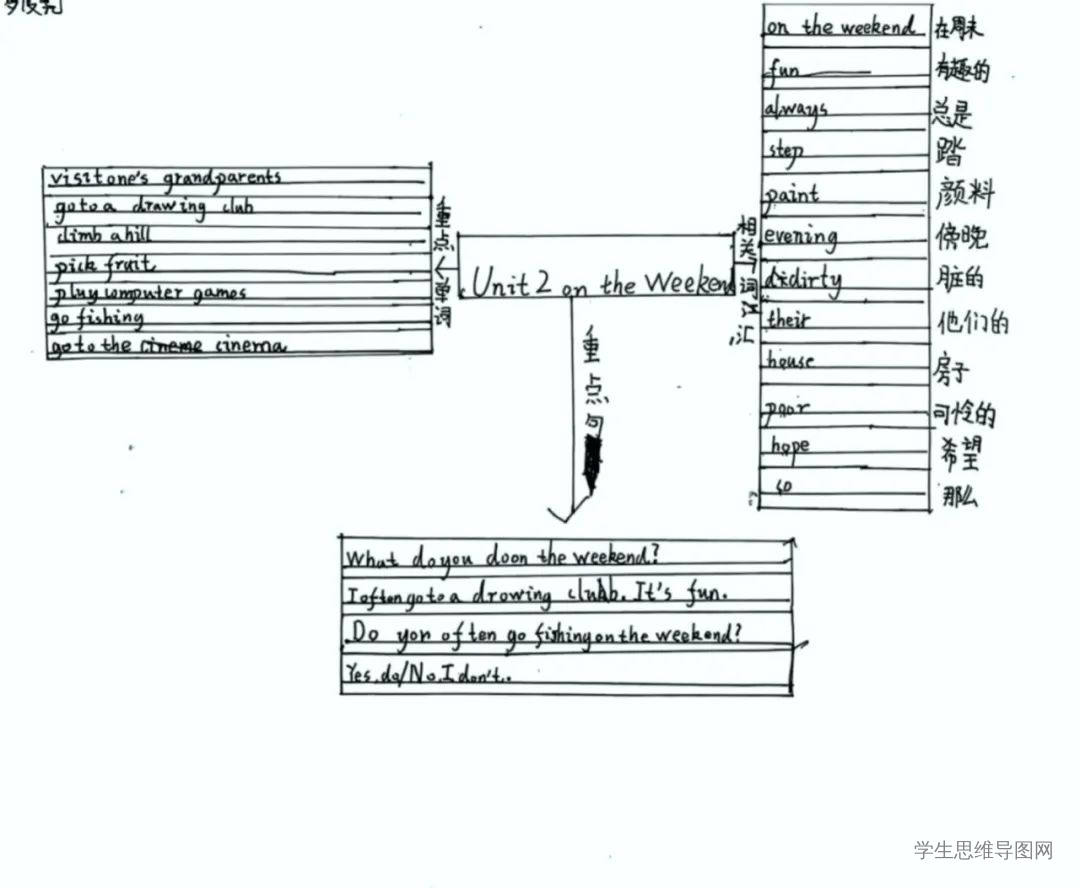 on the weekend 在周末
fun 有趣的
always 总是
step 踏
paint 颜料
evening 傍晚
didirty 脏的
their 他们的
house 房子
poor 可怜的
hope 希望
so 那么
相关词汇
visit one's grandparents
go to a drawing club
climb a hill
pick fruit
play womputer games
go fishing
go to the cineme cinema
重点
Unit 2 on the Weekend
重点句
What do you do on the weekend?
I often go to a drowing club. It's fun.
Do yon often go fishing on the weekend?
Yes.do/No.I don't.
学生思维导图网